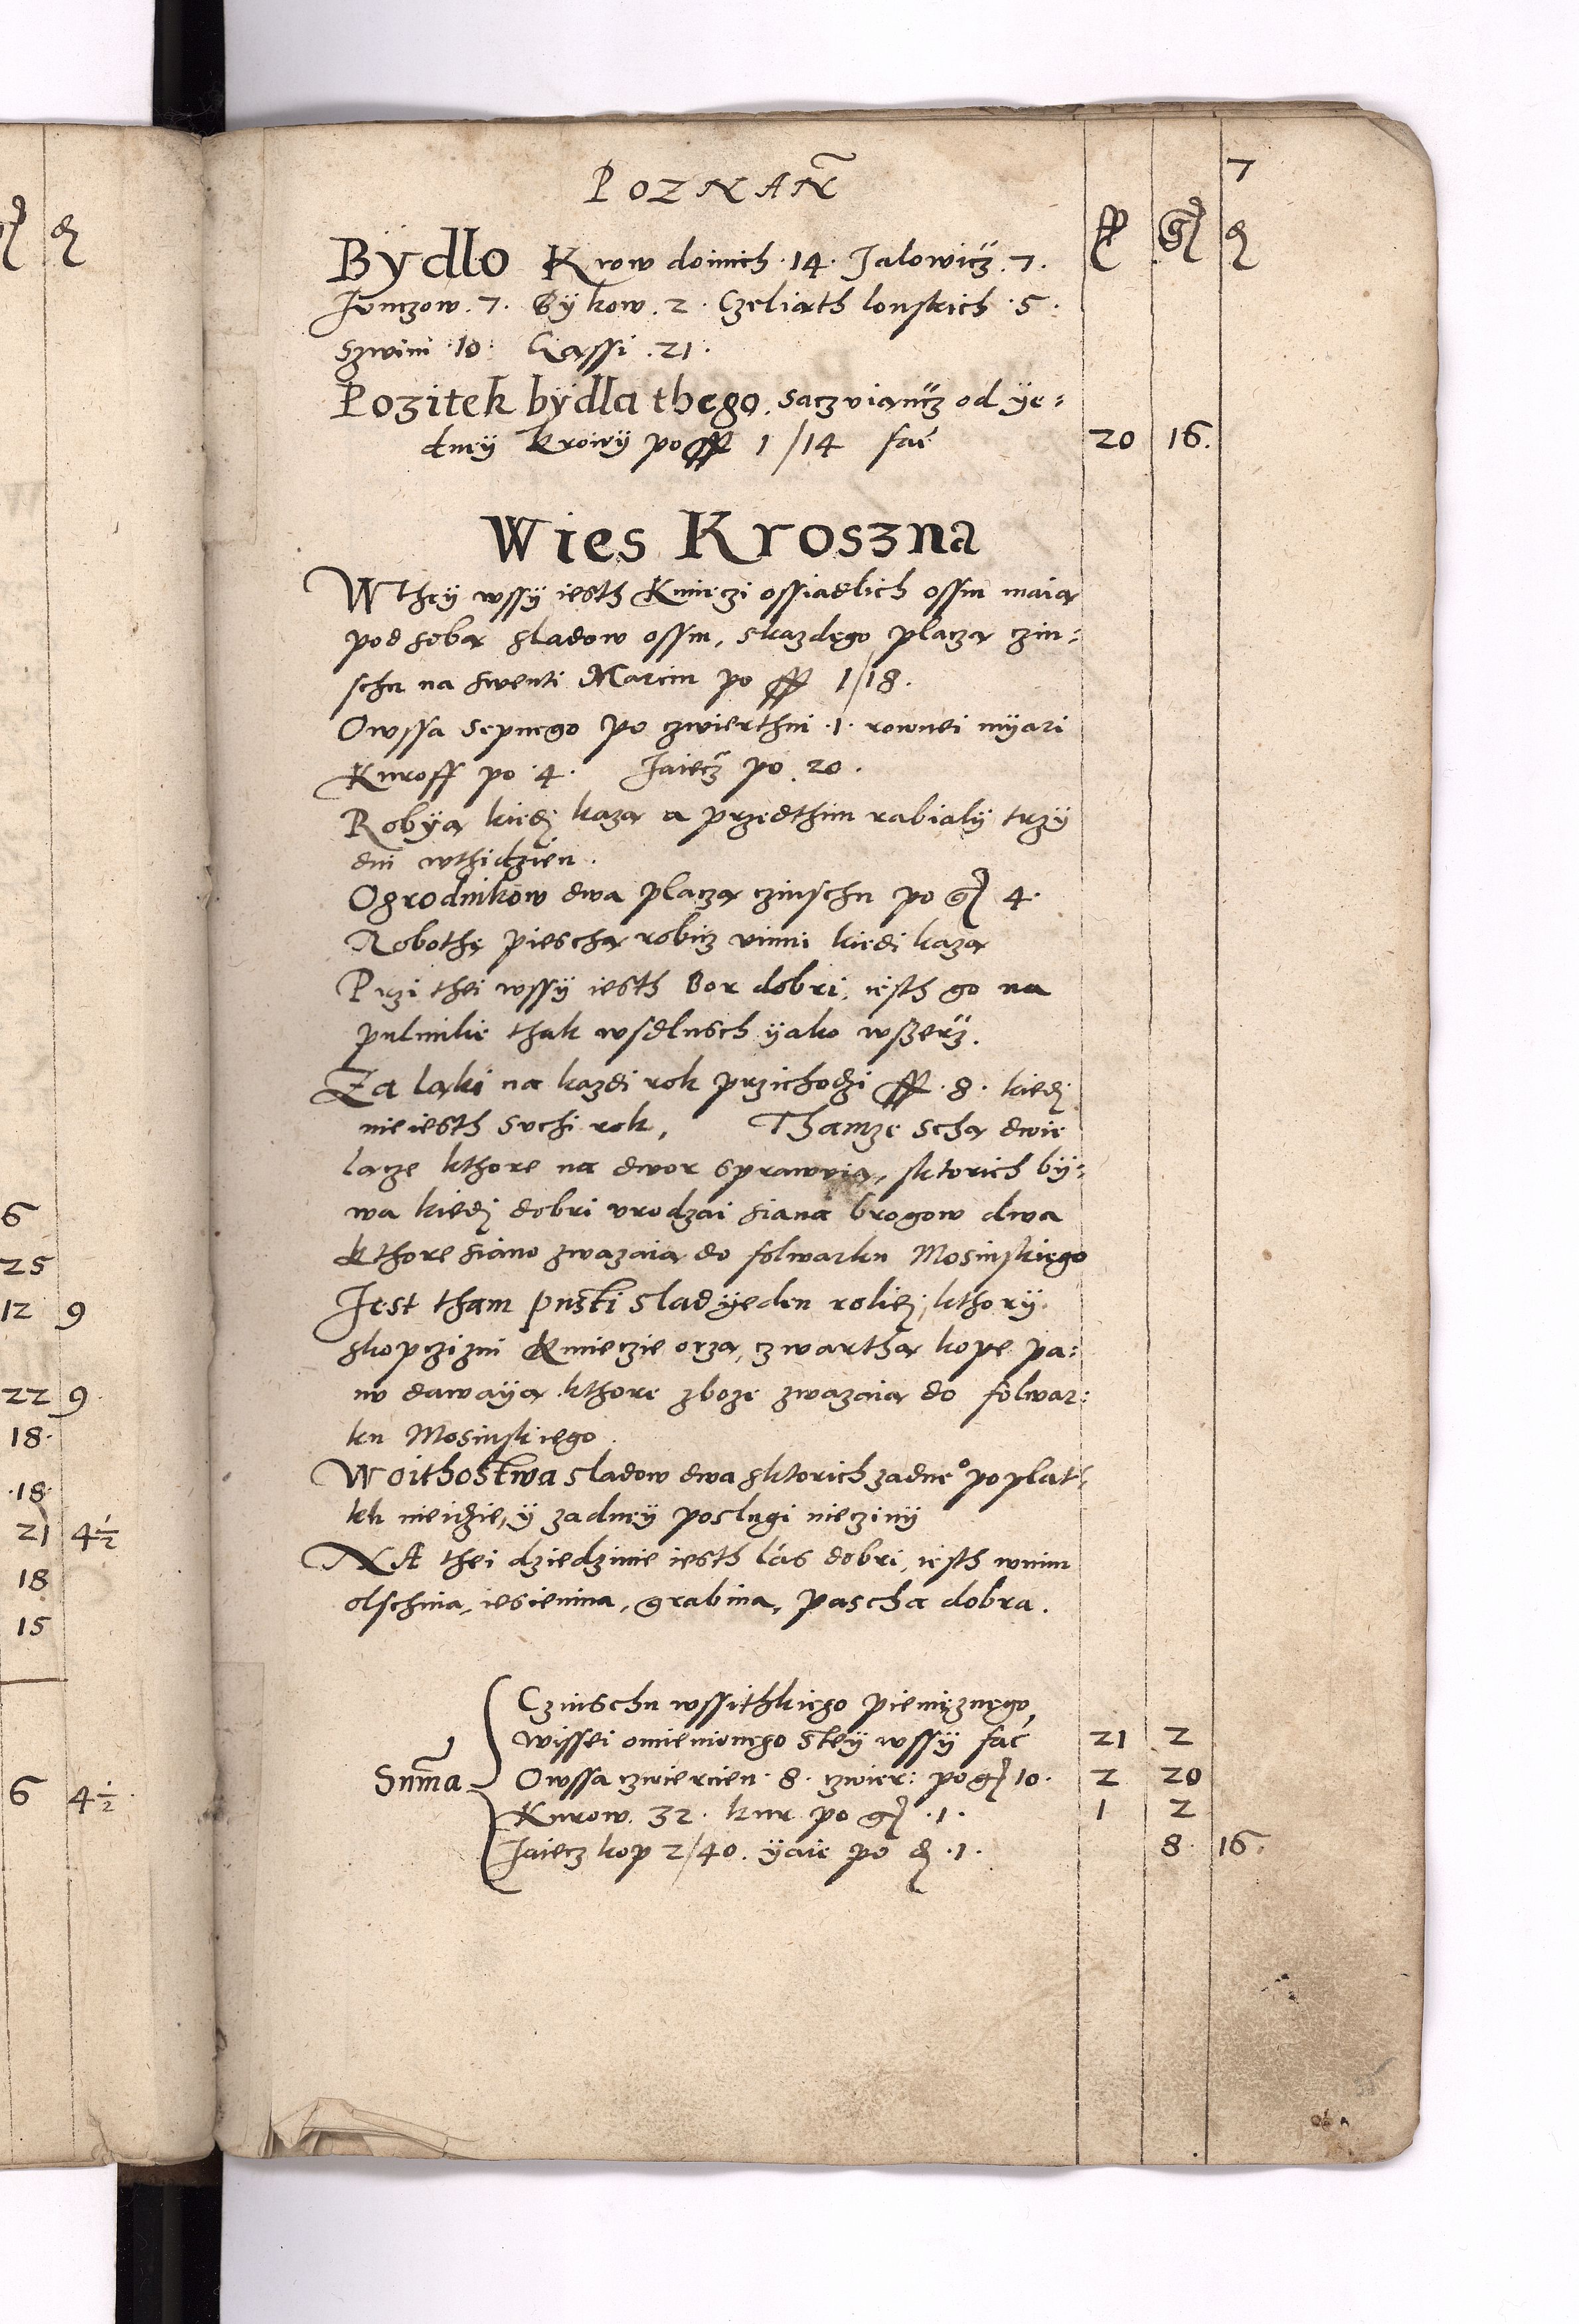 7
POZNAN̄
ff gſ ꝺ
Bydlo Krow doinich ·14· Jalowicz ·7·
Junczow ·7· Bÿkow ·2· Czeliath lonskich ·5·
Szwini ·10· Gassi ·21·
Pozitek bÿdla thego, saczuiancz od ÿe-
dneÿ krowÿ po ff 1/14 fac 20 16
Wies Kroszna
W they wssÿ iesth Kmieczi ossiadlich ossm maia
pod soba sladow ossm, skazdego placza czin-
schu na swenti Marcin po ff 1/18.
Owssa sepnego po czwierthni ·1· rownei mÿari
Kuroff po ·4· Jaiecz po 20.
Robÿa kiedi kaza a przedthim rabialÿ trzÿ
dni wthidzien.
Ogrodnikow dwa placza czinschu po gſ 4.
Robothe piescha robicz vinni kiedi kaza
Przi thei wssÿ iesth Bor dobri, iesth go na
pulmile thak wsdlusch ÿako wszerz.
Za laki na kazdi rok przichodzi ff ·8· kiedi
nie iesth suchi rok, Thamze scha dwie
lacze kthore na dwor sprawuia, sktorich bÿ-
wa kiedi dobri vrodzai siana brogow dwa
kthore siano zwazaia do folwarku Mosinskiego
Jest tham pusti slad ÿeden roliei, kthorÿ
skopczizni kmieczie orza, czwartha kope pa-
nu dawaÿa kthore zboze zwazaia do folwar-
ku Mosinskiego.
Woithostwa sladow dwa sktorich zadneº poplat-
ku nieidzie, ÿ zadneÿ poslugi nieczinÿ
NA thei dziedzinie iesth las dobri, iesth wnim
olschina, iesienina, grabina, pascha dobra.
Czinschu wssithkiego pienieznego,
wissei omienionego steÿ wssÿ fac 21 2
Suma Owssa czwiercien ·8· czwier: po gſ 10. 2 20
Kurow 32. kur po gſ ·1· 1 2
Jaiecz kop 2/40. ÿaie po ꝺ ·1· 8 16
6
25
12 9
22 9
18
18
21 4½
18
15
6 4½